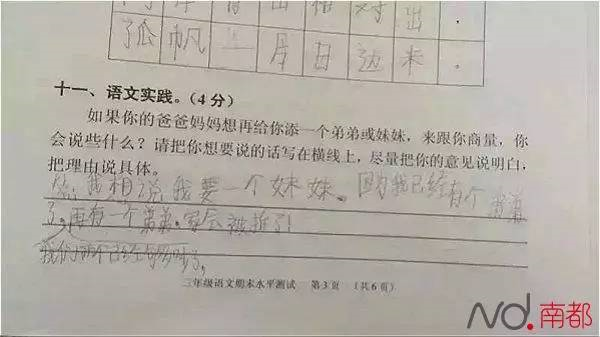 出
了孤帆一片日边来。
十一、语文实践。(4分)
如果你的爸爸妈妈想再给你添一个弟弟或妹妹，来跟你商量，你
会说些什么？请把你想要说的话写在横线上，尽量把你的意见说明白，
把理由说具体。
我想说我要一个妹妹。因为我已经有个弟弟
了。再有一个弟弟。家会被拆了！
我们两个已经够
三年级语文期末水平测试 第3页 (共6页)
nd.南都